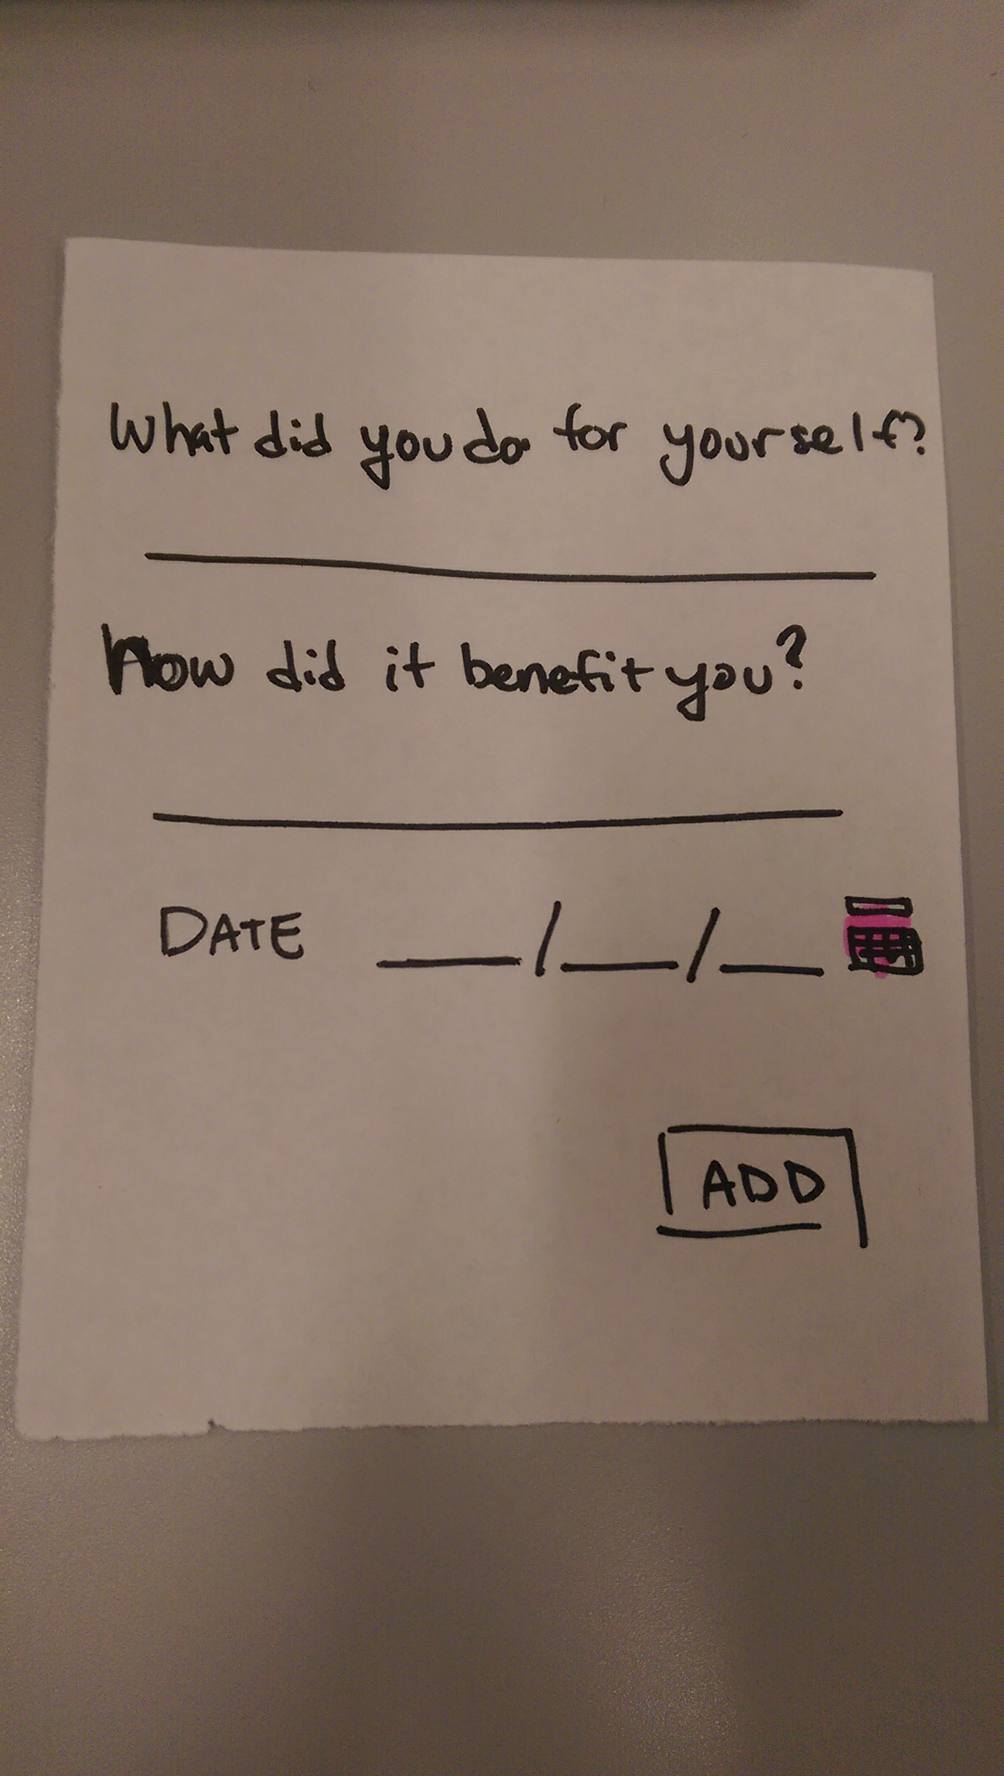 What did you do for yourself?
How did it benefit you?
DATE __/__/__
ADD